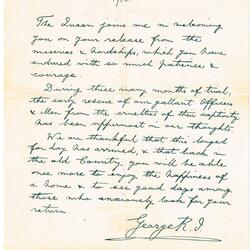 1918.
The Queen joins me in welcoming
you on your release from the
miseries & hardships, which you have
endured with so much patience &
courage.
During these many months of trial,
the early rescue of our gallant Officers
& Men from the cruelties of their captivity
has been uppermost in our thoughts.
We are thankful that this longed
for day has arrived, & that back in
the old Country you will be able
once more to enjoy the happiness of
a home & to see good days among
those who anxiously look for your
return.
George R.I.